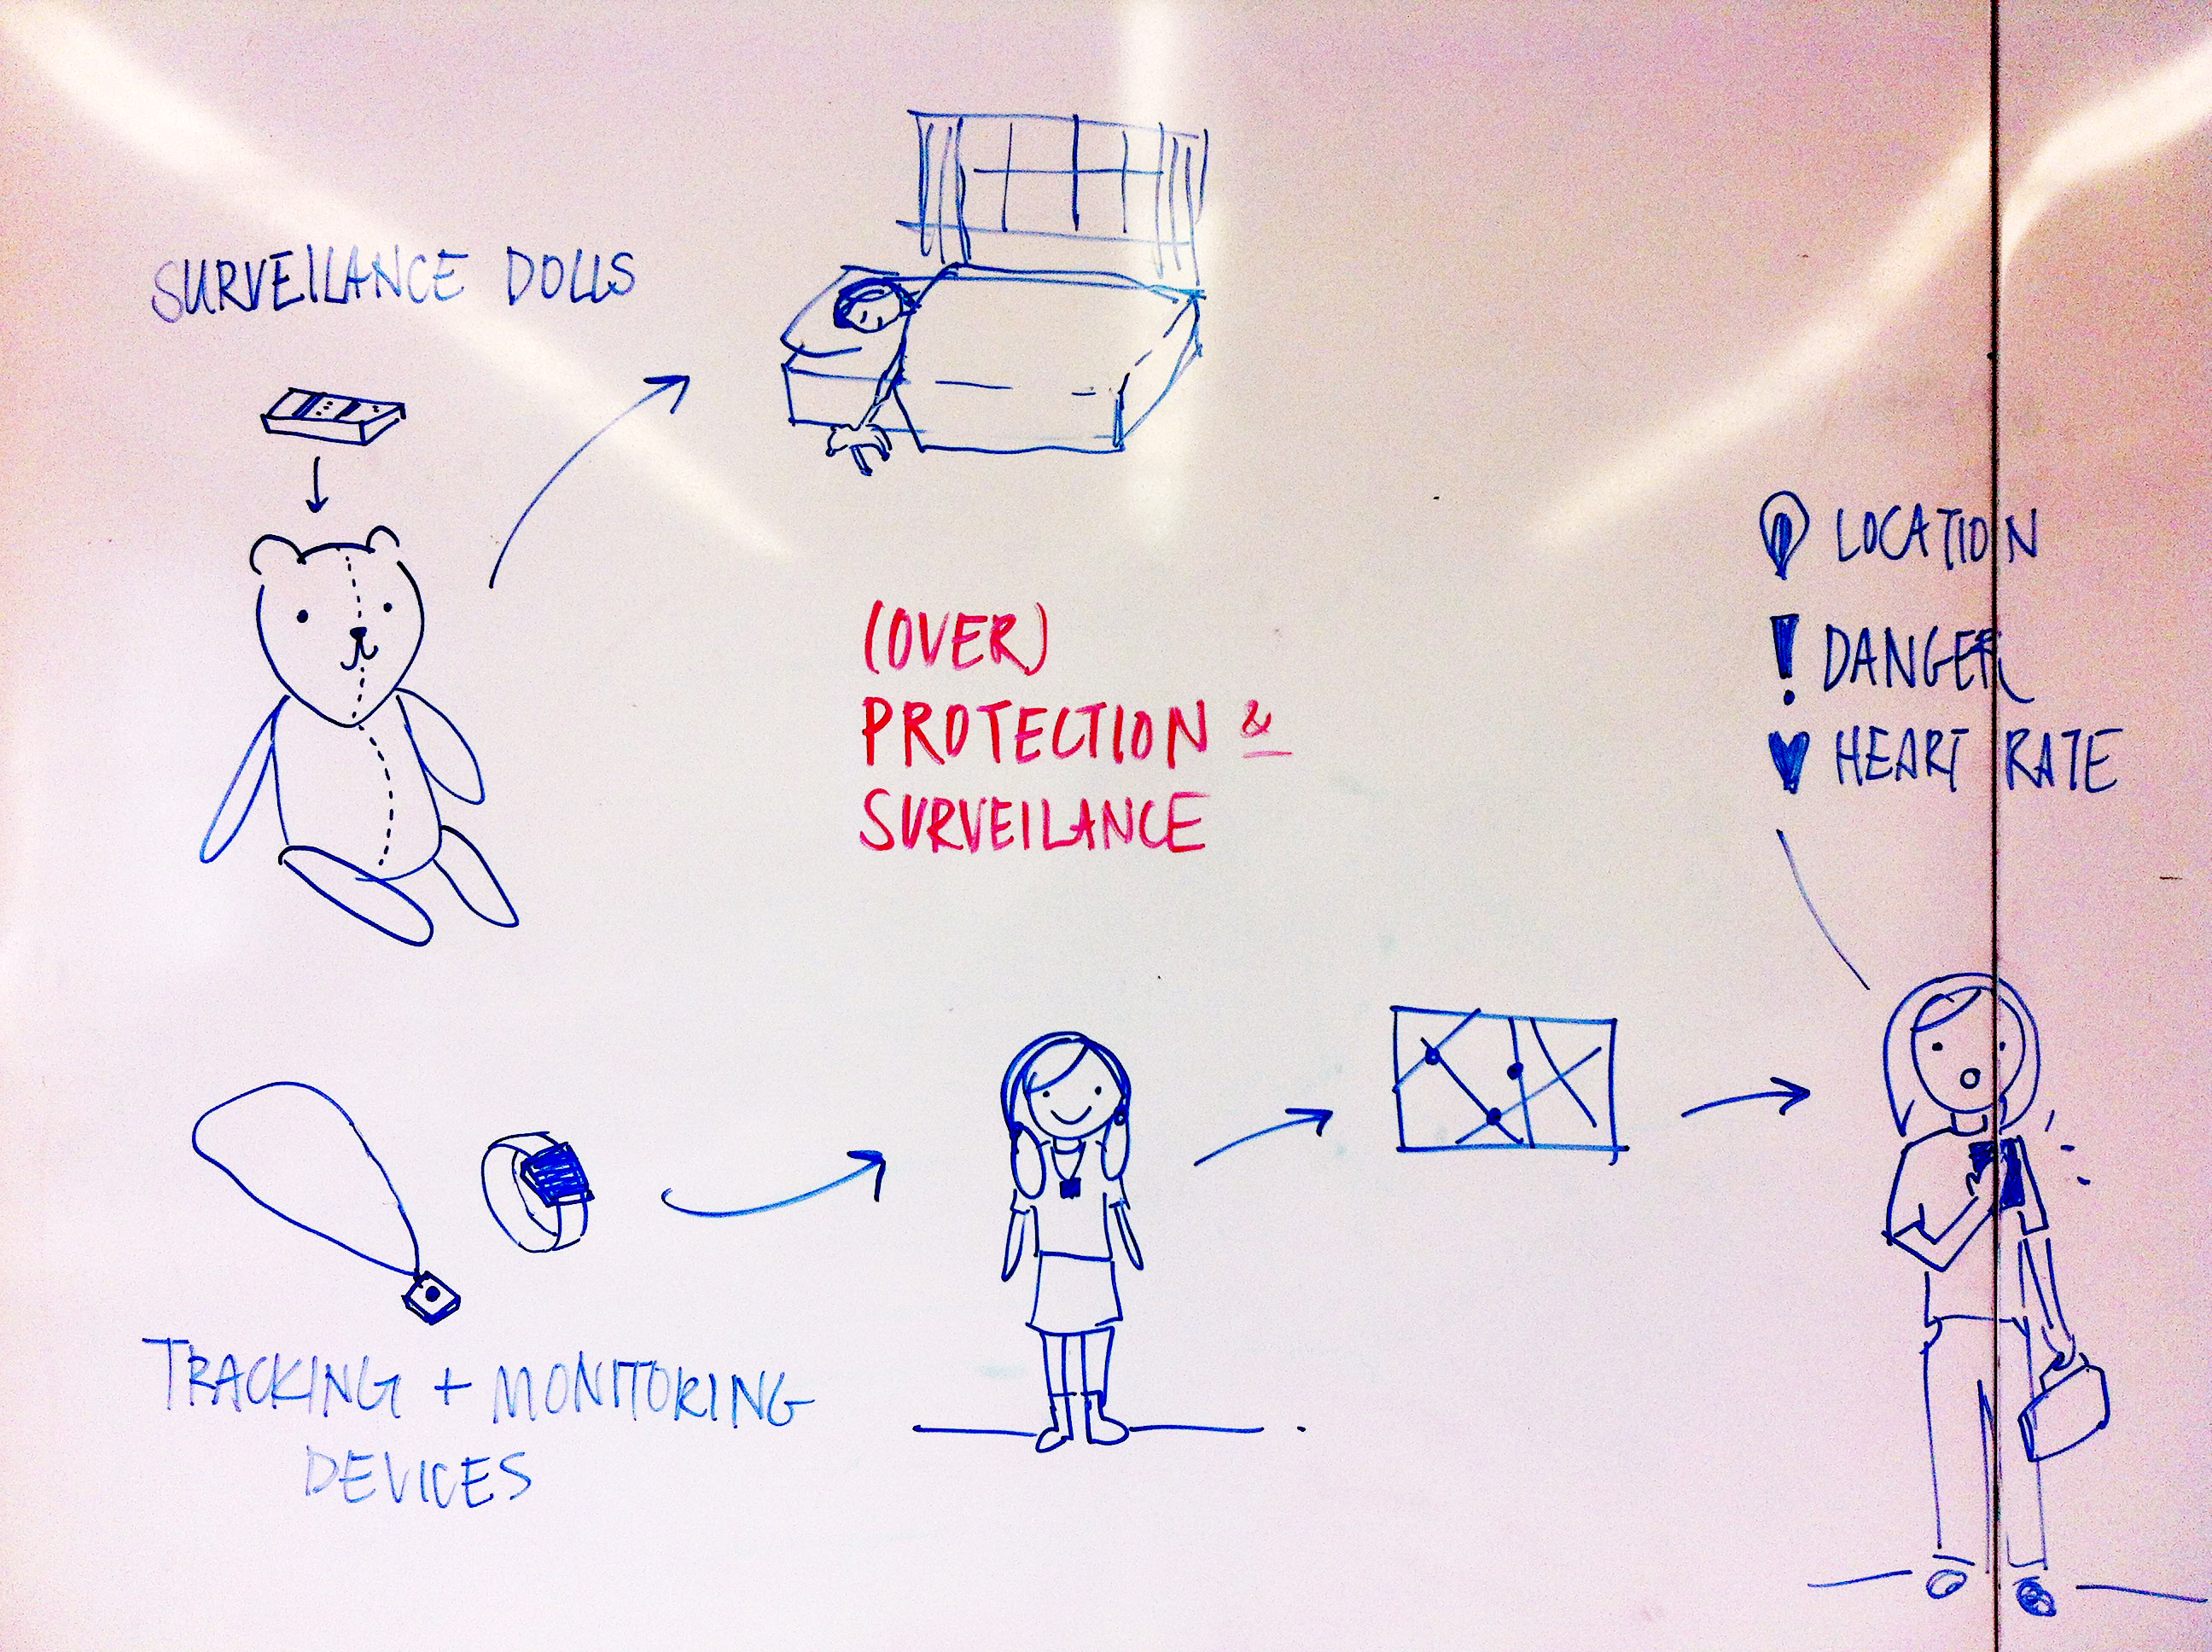 SURVEILANCE DOLLS
(OVER)
PROTECTION &
SURVEILANCE
LOCATION
! DANGER
HEART RATE
TRACKING + MONITORING
DEVICES